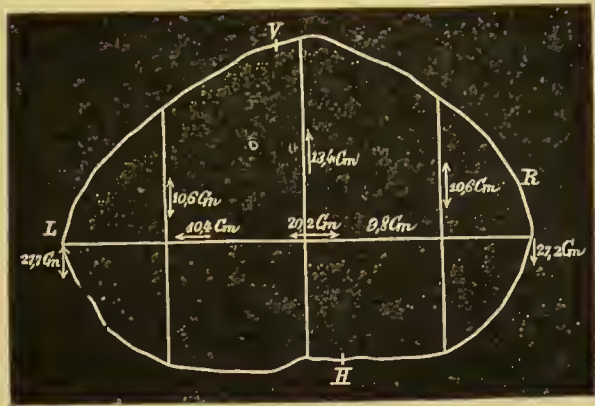 V
13,4 Cm
10,6 Cm
10,6 Cm
R
L
10,4 Cm
20,2 Cm
9,8 Cm
27,7 Cm
27,2 Cm
H